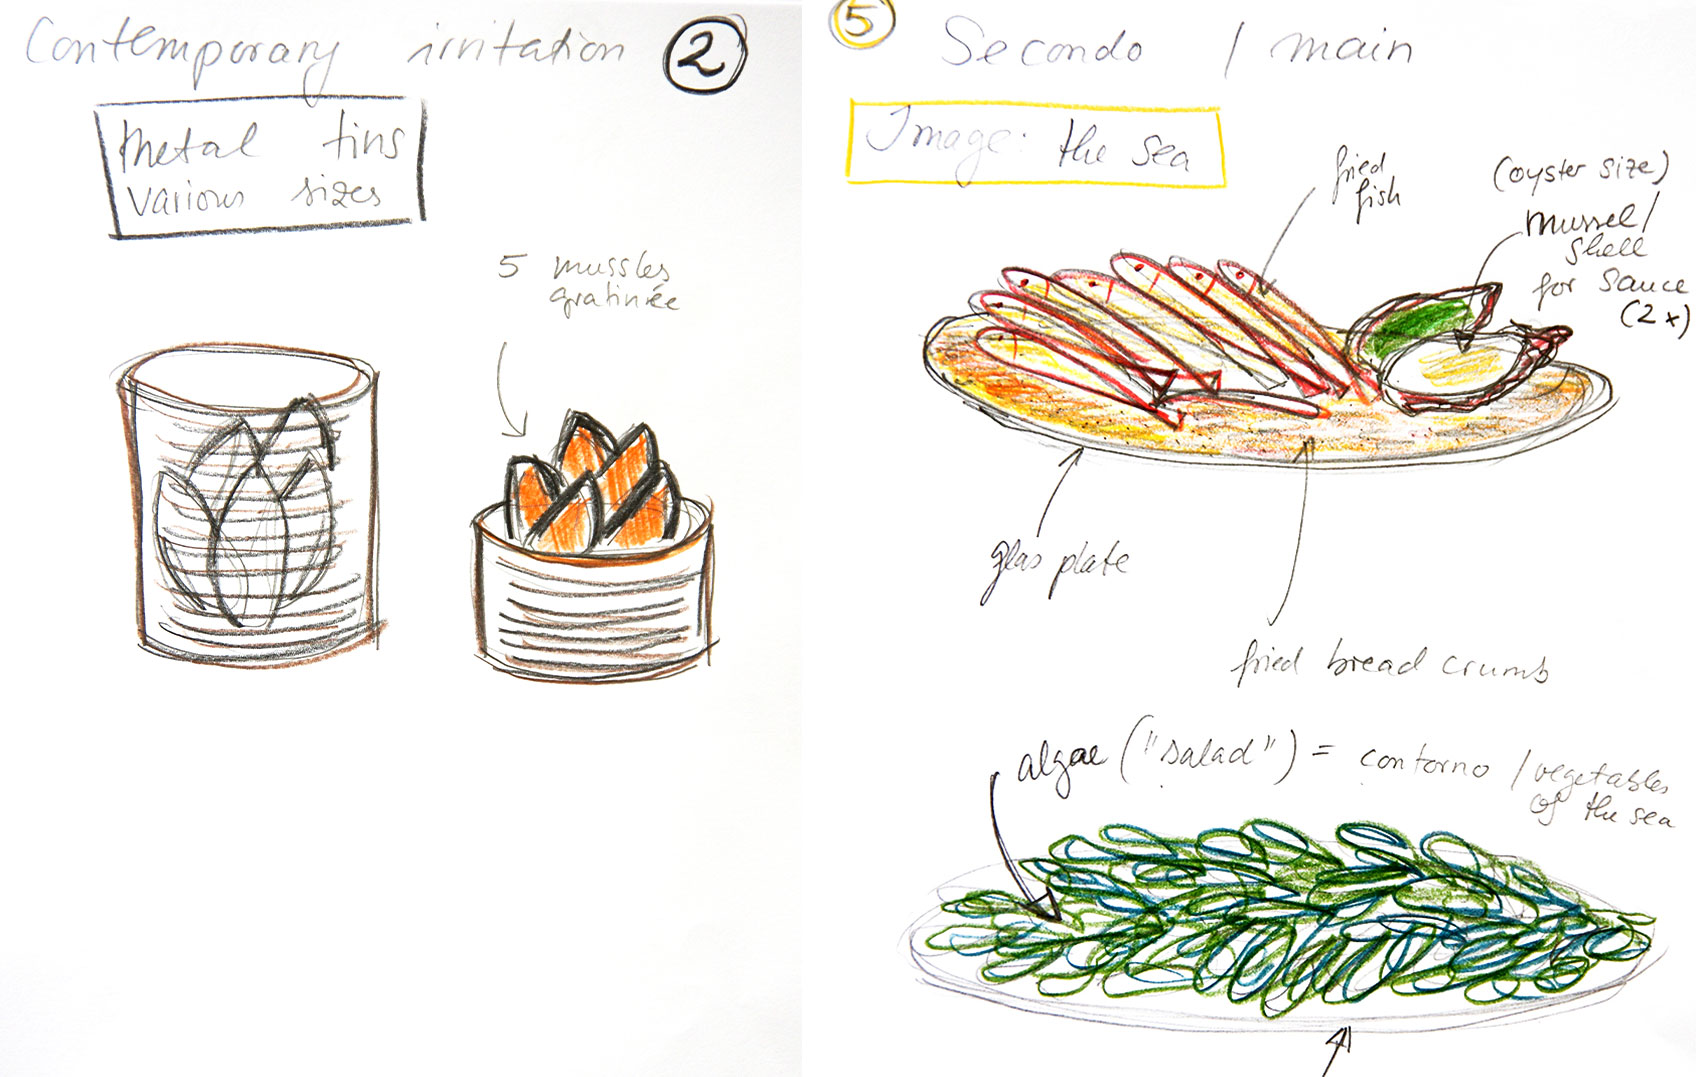 Contemporary irritation 2
metal tins
various sizes
5 mussles
gratinée
5 Secondo / main
Image: the sea
fried
fish
(oyster size)
mussel/
shell
for sauce
(2x)
glas plate
fried bread crumb
algae ("salad") = contorno / vegetables
of the sea